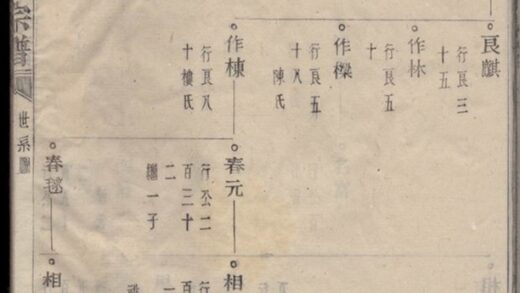 良麒
行良三
十五
作林
行良五
十
作樑
行良五
十八
陳氏
作棟
行良八
十樓氏
春元
行公二
百三十
二
繼一子
相
行
百
一
春毬
相
宗譜
世系圖